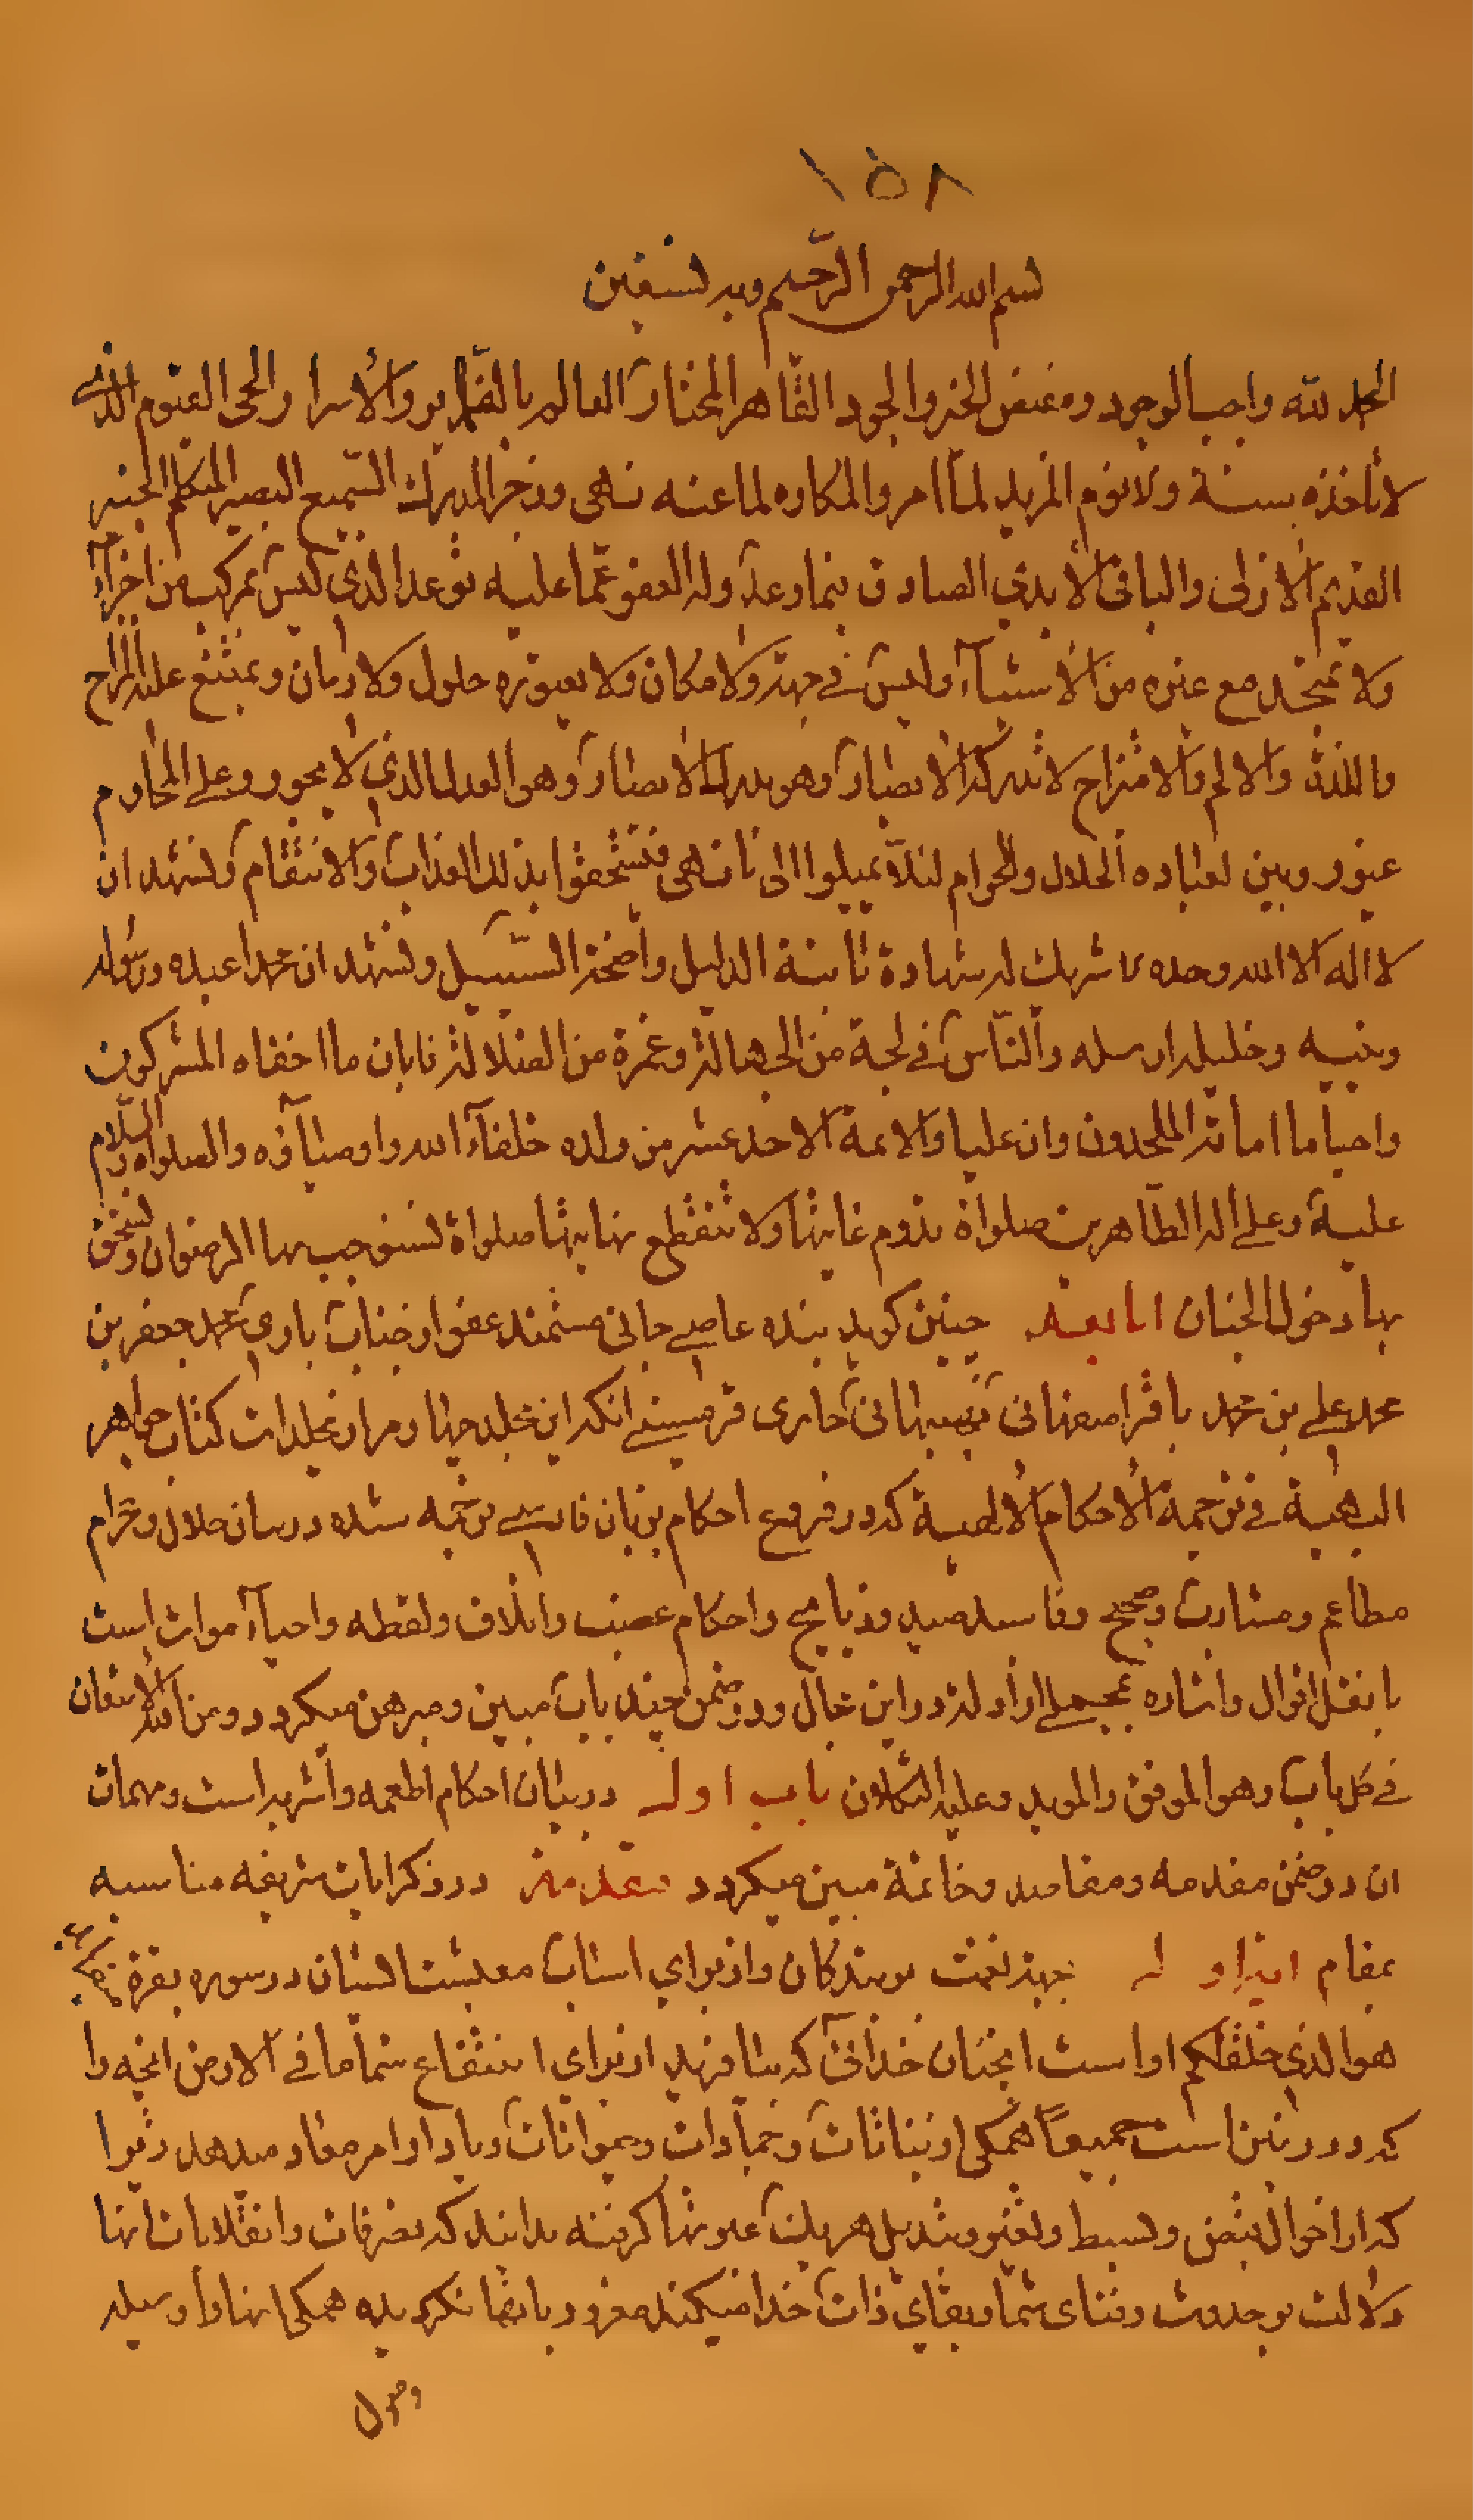 ۱۵۸
بسم الله الرحمن الرّحيم وبه نستعين
الحمد لله واجب الوجود ومفيض الخير والجود القاهر المختار العالم بالضماير والأسرار والحى القيوم الذى
لا تأخذه سنة ولا نوم المريد لما امر والمكاره لما عنه نهى وزجر المدرك السّميع البصير المتكلم الخبير
القديم الازلى والباقى الابدي الصادق بما وعد وله العفو عمّا عليه توعد الذى ليس بمركب من اجزآء
ولا بمتحد مع غيره من الاشيآء وليس في جهة ولا مكان ولا يعتوره حلول ولا زمان ويمتنع عليه
واللذة والالم والامتزاج لا تدركه الابصار وهو يدرك الابصار وهو العدل الذي لا يجور وعلى المحارم
غيور وبين لعباده الحلال والحرام لئلا يميلوا الى ما نهى فيستحقوا بذلك العذاب والانتقام ونشهد ان
لا اله الا الله وحده لا شريك له شهادة ثابتة الدليل واضحة السّبيل ونشهد ان محمدا عبده ورسوله
ونبيه وخليله ارسله والناس في لجة من الجهالة وغمرة من الضلالة فابان ما اخفاه المشركون
واحيا ما اماته الملحدون وان عليا والائمة الاحد عشر من ولده خلفآء الله واوصيآؤه والصلواة والسّلام
عليه وعلى اله الطّاهرين صلواة يدوم غايتها ولا تنقطع نهايتها صلواة نستوجب بها الرضوان ونستحق
بها دخول الجنان امّا بعد چنين كويد بنده عاصى جانى مستمند عفو از جناب بارى محمد جعفر بن
محمد علي بن محمد باقر اصفهانى بهبهانى حائرى قرميسينى انكه اين مجلد چهارم از مجلدات كتاب جواهر
البهية في ترجمة الاحكام الالهية كه در فروع احكام بزبان فارسى ترجمه شده در بيان حلال وحرام
مطاعم ومشارب وصحيح وفاسد صيد وذبايح واحكام غصب واتلاف ولقطه واحيآء موات است
با نقل اقوال واشاره بمجملى از ادله در اين حال ودر ضمن چند باب مبين ومبرهن ميكردد ومن الله الاستعان
في كل باب وهو الموفق والمويد وعليه التكلان باب اول در بيان احكام اطعمه واشربه است ومهمات
ان در ضمن مقدمه ومقاصد وخاتمة مبين ميكردد مقدمه در ذكر ايات شريفه مناسبه
بمقام ايه اولى جهة نعمت بر بندكان واز براي اسباب معيشت ايشان در سوره بقره
هو الذى خلق لكم او است انچنان خدائى كه بيافريد از براى انتفاع شما ما في الارض انچه را
كه در زمين است جميعًا همكى از نباتات وجمادات وحيوانات
كه از احوال قبض وبسط وتغير وتبديل هر يك عبرتها كرفته بدانند كه تصرفات وانقلابات انها
دلالت بر حدوث وفناى شما وبقاى ذات خدا ميكند مغرور بانها نكرديده همكى انها را وسيله
وصول